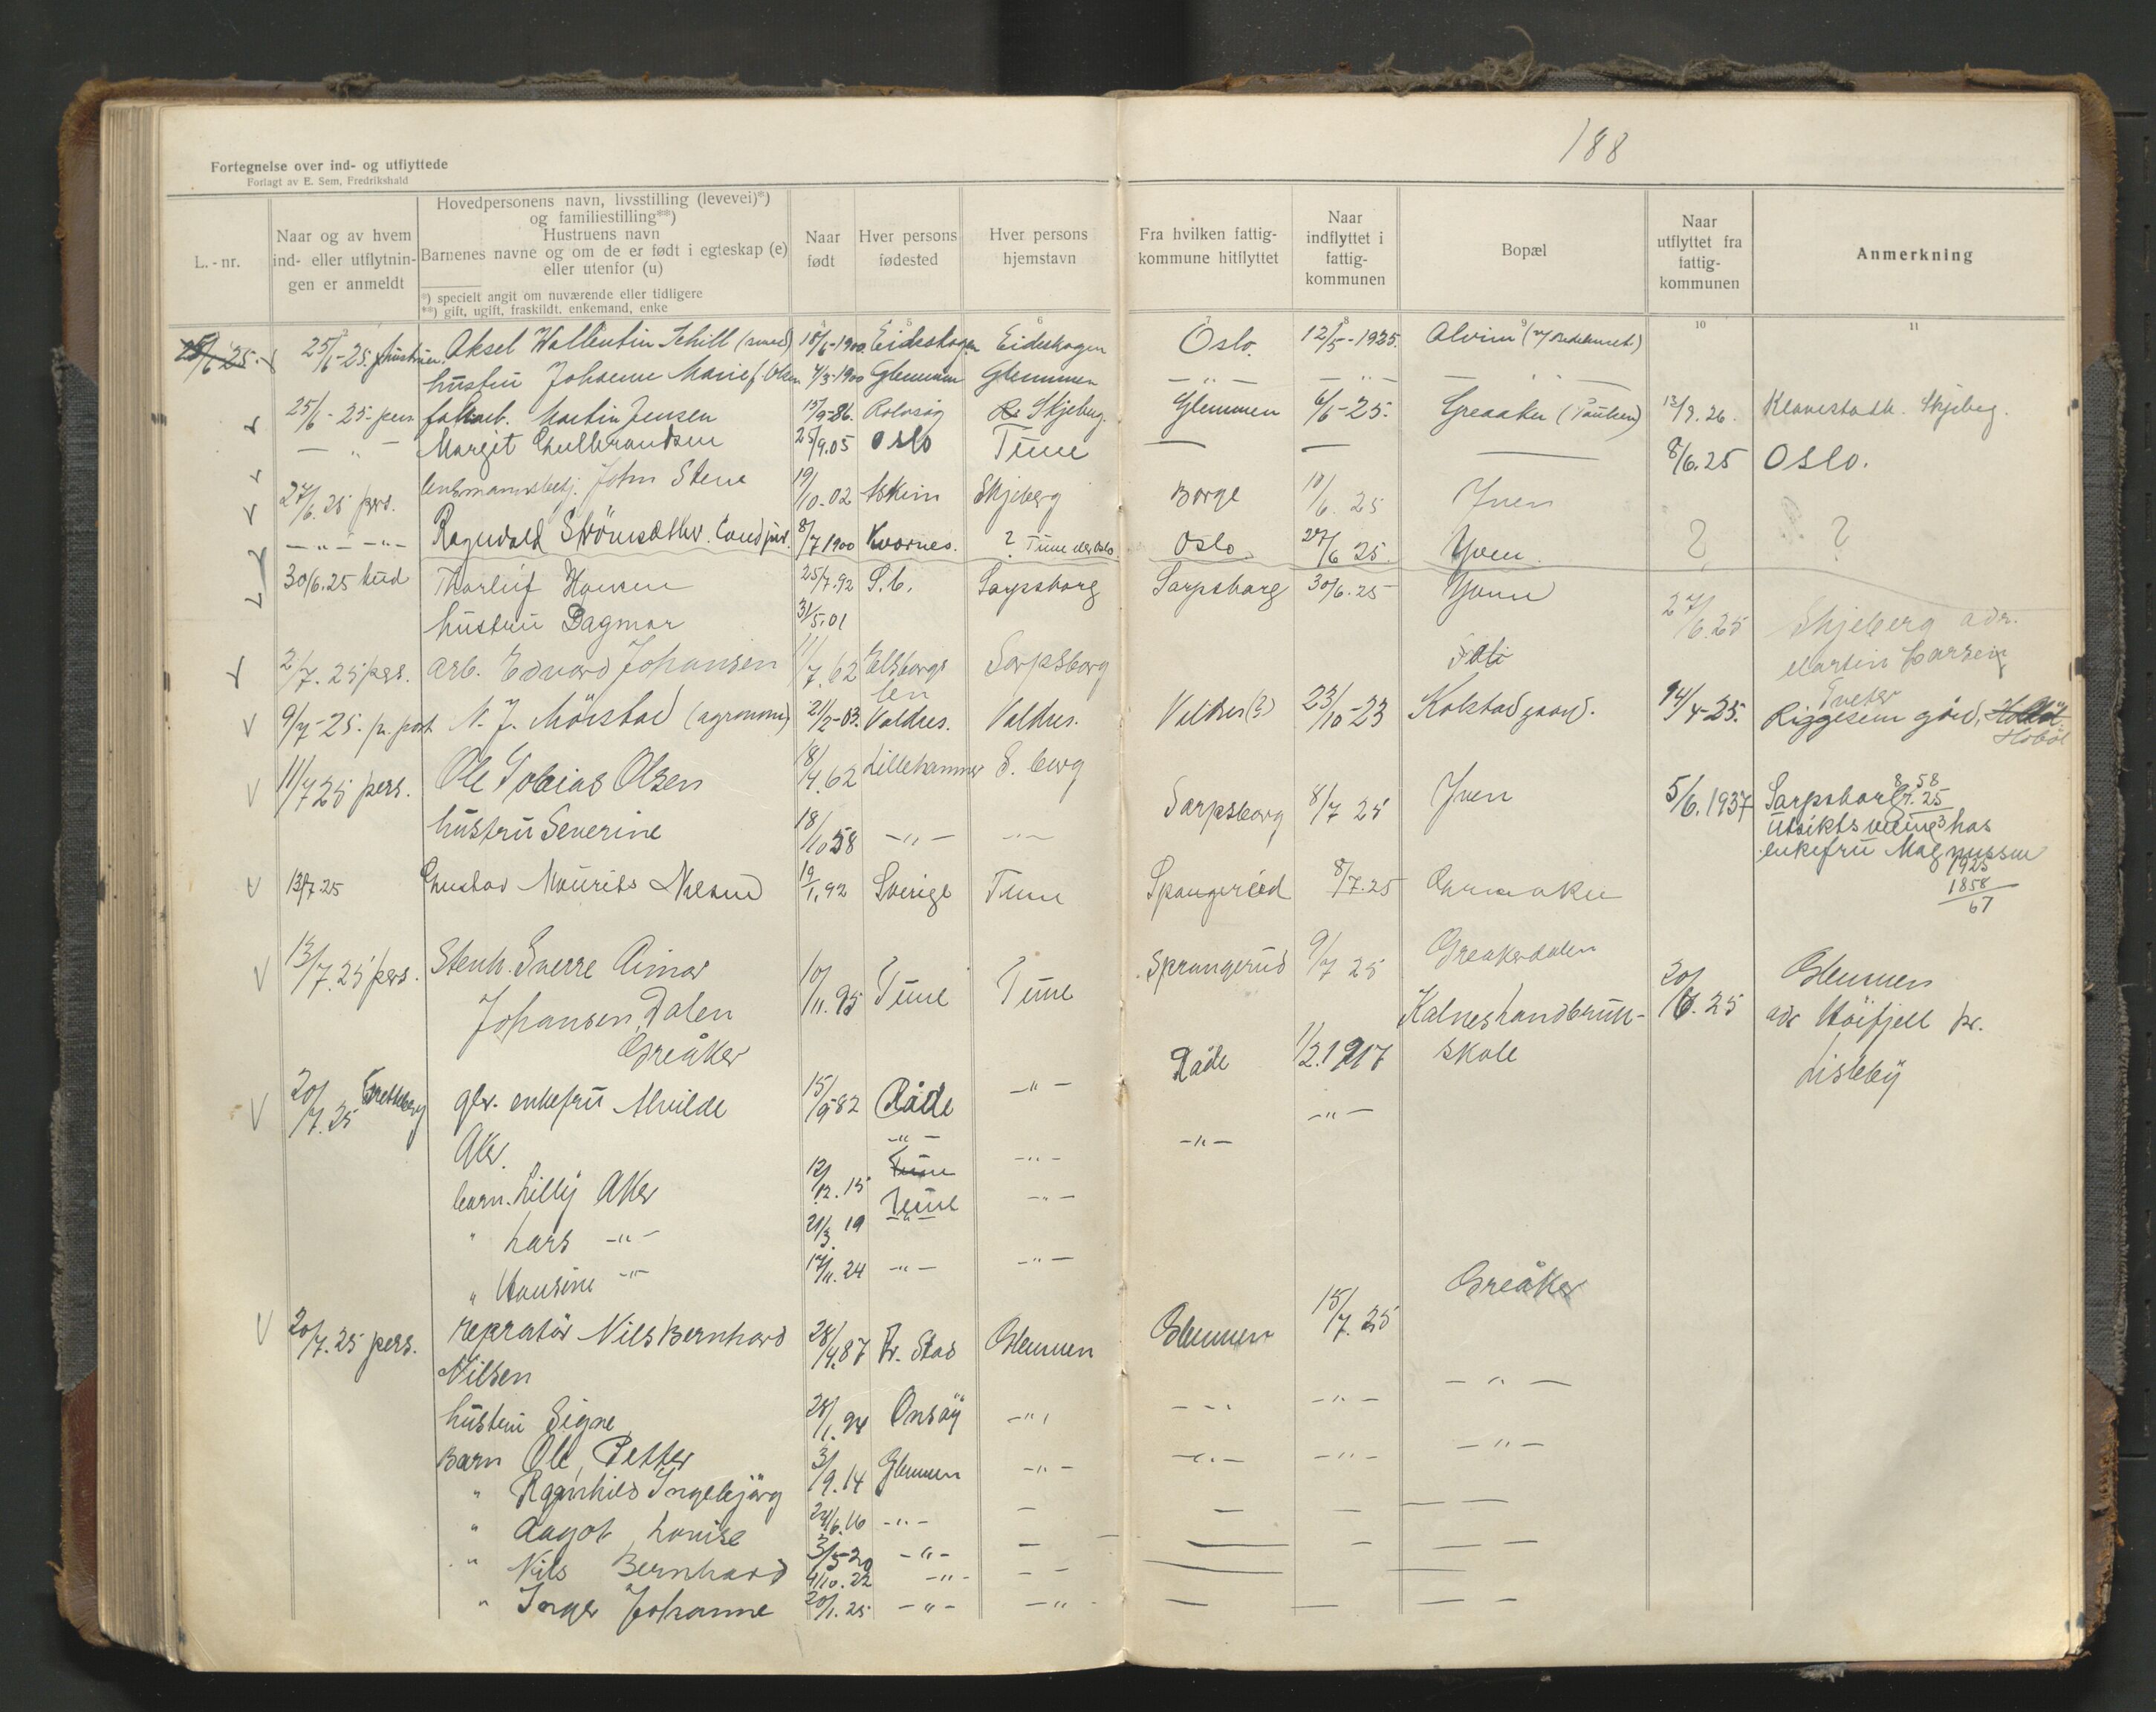 188
Fortegnelse over ind- og utflyttede
Forlagt av E. Sem, Fredrikshald
L.-nr.
Naar og av hvem ind- eller utflytningen er anmeldt
Hovedpersonens navn, livsstilling (levevei)*)
og familiestilling**)
Hustruens navn
Barnenes navne og om de er født i egteskap (e)
eller utenfor (u)
*) specielt angit om nuværende eller tidligere
**) gift, ugift, fraskildt, enkemand, enke
Naar født
Hver persons fødested
Hver persons hjemstavn
Fra hvilken fattigkommune hitflyttet
Naar indflyttet i fattigkommunen
Bopæl
Naar utflyttet fra fattigkommunen
Anmerkning
4 5 6 7 8 9 10 11
25/6-25. hustruen. Aksel Wallentin Schill 18/6-1900 Eidskogen Eidskogen Oslo. 12/5-1925. Alvim
hustru Johanne Marie f. Olsen 4/3-1900 Glemmen Glemmen — " — — " —
25/6-25-pers. Martin Jensen 15/9-86. Rolvsøy Skjeberg. Glemmen 6/6-25. Greaaker (Paulsen) 13/9.26. Klavestadh. Skjeberg.
— " — Margit Gulbrandsen 25/9.05 Oslo Tune — — — 8/6.25 Oslo.
27/6.25 pers. lensmannsbetj. John Stene 19/10-02 Askim Skjeberg Borge 10/6.25 Yven
— " — — " — Ragnvald Strömsæther. Cand jur. 8/7 1900 Kvernes. ? Tune eller Oslo Oslo 27/6 25. Yven ? ?
30/6.25 bud Thorleif Hansen 25/7.92 S.b. Sarpsborg Sarpsborg 30/6.25 Yven
hustru Dagmar 31/5.01
2/7.25 pers. arb. Edvard Johansen 11/7.62 Sarpsborg 27/6.25 Skjeberg adr.
Martin Larsen
9/7-25. pr. post N. J. Möistad (agronom) 21/2-03. Valdres. Valdres. Valdres (?) 23/10-23 Kolstad gaard. 14/4-25. Riggesum gård,
Hobøl
11/7 25 pers. Ole Tobias Olsen 18/4.62 Lillehammer S. berg Sarpsborg 8/7 25 Yven 5/6.1937 Sarpsborg
hustru Severine 18/10 58 — " — — " — Utsiktsveien 3 hos
enkefru Magnussen
1925
1858
67
13/7 25 Gustav Mauritz Nilsen 19/1.92 Sverige Tune Spangerød 8/7.25 Greaaker
13/7.25 pers. Stenh. Sverre Aimar 10/11.95 Tune Tune Sprangerud 9/7 25 Greakerdalen
Johansen, Dalen
Greåker
20/7.25 gbr. enkefru Alvilde 15/9 82 Råde — " — Råde 1/2.1917 Kalneslandbruk-
skole 20/6.25 Glemmen
adr Høifjell pr.
Lisleby
Aker.
barn. Lilly Aker 12/12.15 Tune — " —
" Lars — " — 21/3.19 — " — — " —
" Hansine — " — 17/11.24 — " — — " —
20/7.25 pers. repratør Nils Bernhard 28/4.87 Fr. Stad Glemmen Glemmen 15/7.25 Greåker
Nilsen
hustru Signe 28/1.94 Onsøy — " — — " — — " — — " —
Barn Ole Petter 3/9.14 Glemmen — " — — " — — " — — " —
" Ragnhild Ingebjørg 24/6.16 — " —
" Aagot Louise 3/5-20 — " —
" Nils Bernhard 4/10.22 — " —
" Inger Johanne 20/1.25 — " — — " —